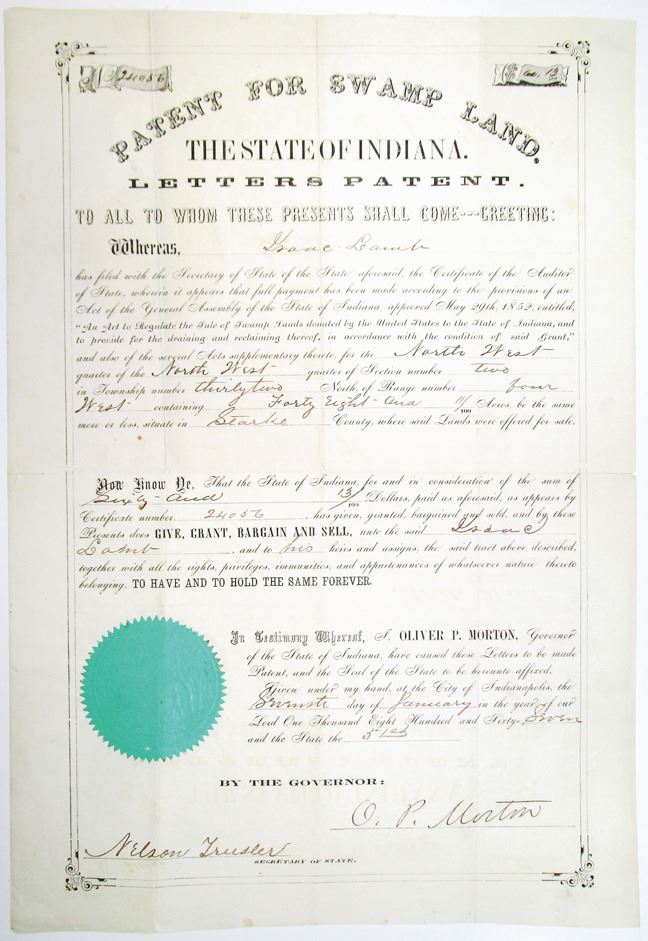 24056
PATENT FOR SWAMP LAND.
THE STATE OF INDIANA.
LETTERS PATENT.
TO ALL TO WHOM THESE PRESENTS SHALL COME---GREETING:
Whereas, Isaac Lamb
has filed with the Secretary of State of the State aforesaid, the Certificate of the Auditor
of State, wherein it appears that full payment has been made according to the provisions of an
Act of the General Assembly of the State of Indiana approved May 29th, 1852, entitled,
"An Act to Regulate the Sale of Swamp Lands donated by the United States to the State of Indiana, and
to provide for the draining and reclaiming thereof, in accordance with the condition of said Grant,"
and also of the several Acts supplementary thereto, for the North West
quarter of the North West quarter of Section number two
in Township number thirtytwo North, of Range number four
West containing Forty Eight and 11/100 Acres, be the same
more or less, situate in Starke County, where said Lands were offered for sale.
Now Know Ye, That the State of Indiana, for and in consideration of the sum of
Sixty and 13/100 Dollars, paid as aforesaid, as appears by
Certificate number, 24056, has given, granted, bargained and sold, and by these
Presents does GIVE, GRANT, BARGAIN AND SELL, unto the said Isaac
Lamb, and to his heirs and assigns, the said tract above described,
together with all the rights, privileges, immunities, and appurtenances of whatsoever nature thereto
belonging, TO HAVE AND TO HOLD THE SAME FOREVER.
In Testimony Whereof, I, OLIVER P. MORTON, Governor
of the State of Indiana, have caused these Letters to be made
Patent, and the Seal of the State to be hereunto affixed.
Given under my hand, at the City of Indianapolis, the
Seventh day of January in the year of our
Lord One Thousand Eight Hundred and Sixty-Seven
and the State the 51st
BY THE GOVERNOR:
O. P. Morton
Nelson Trusler
SECRETARY OF STATE.